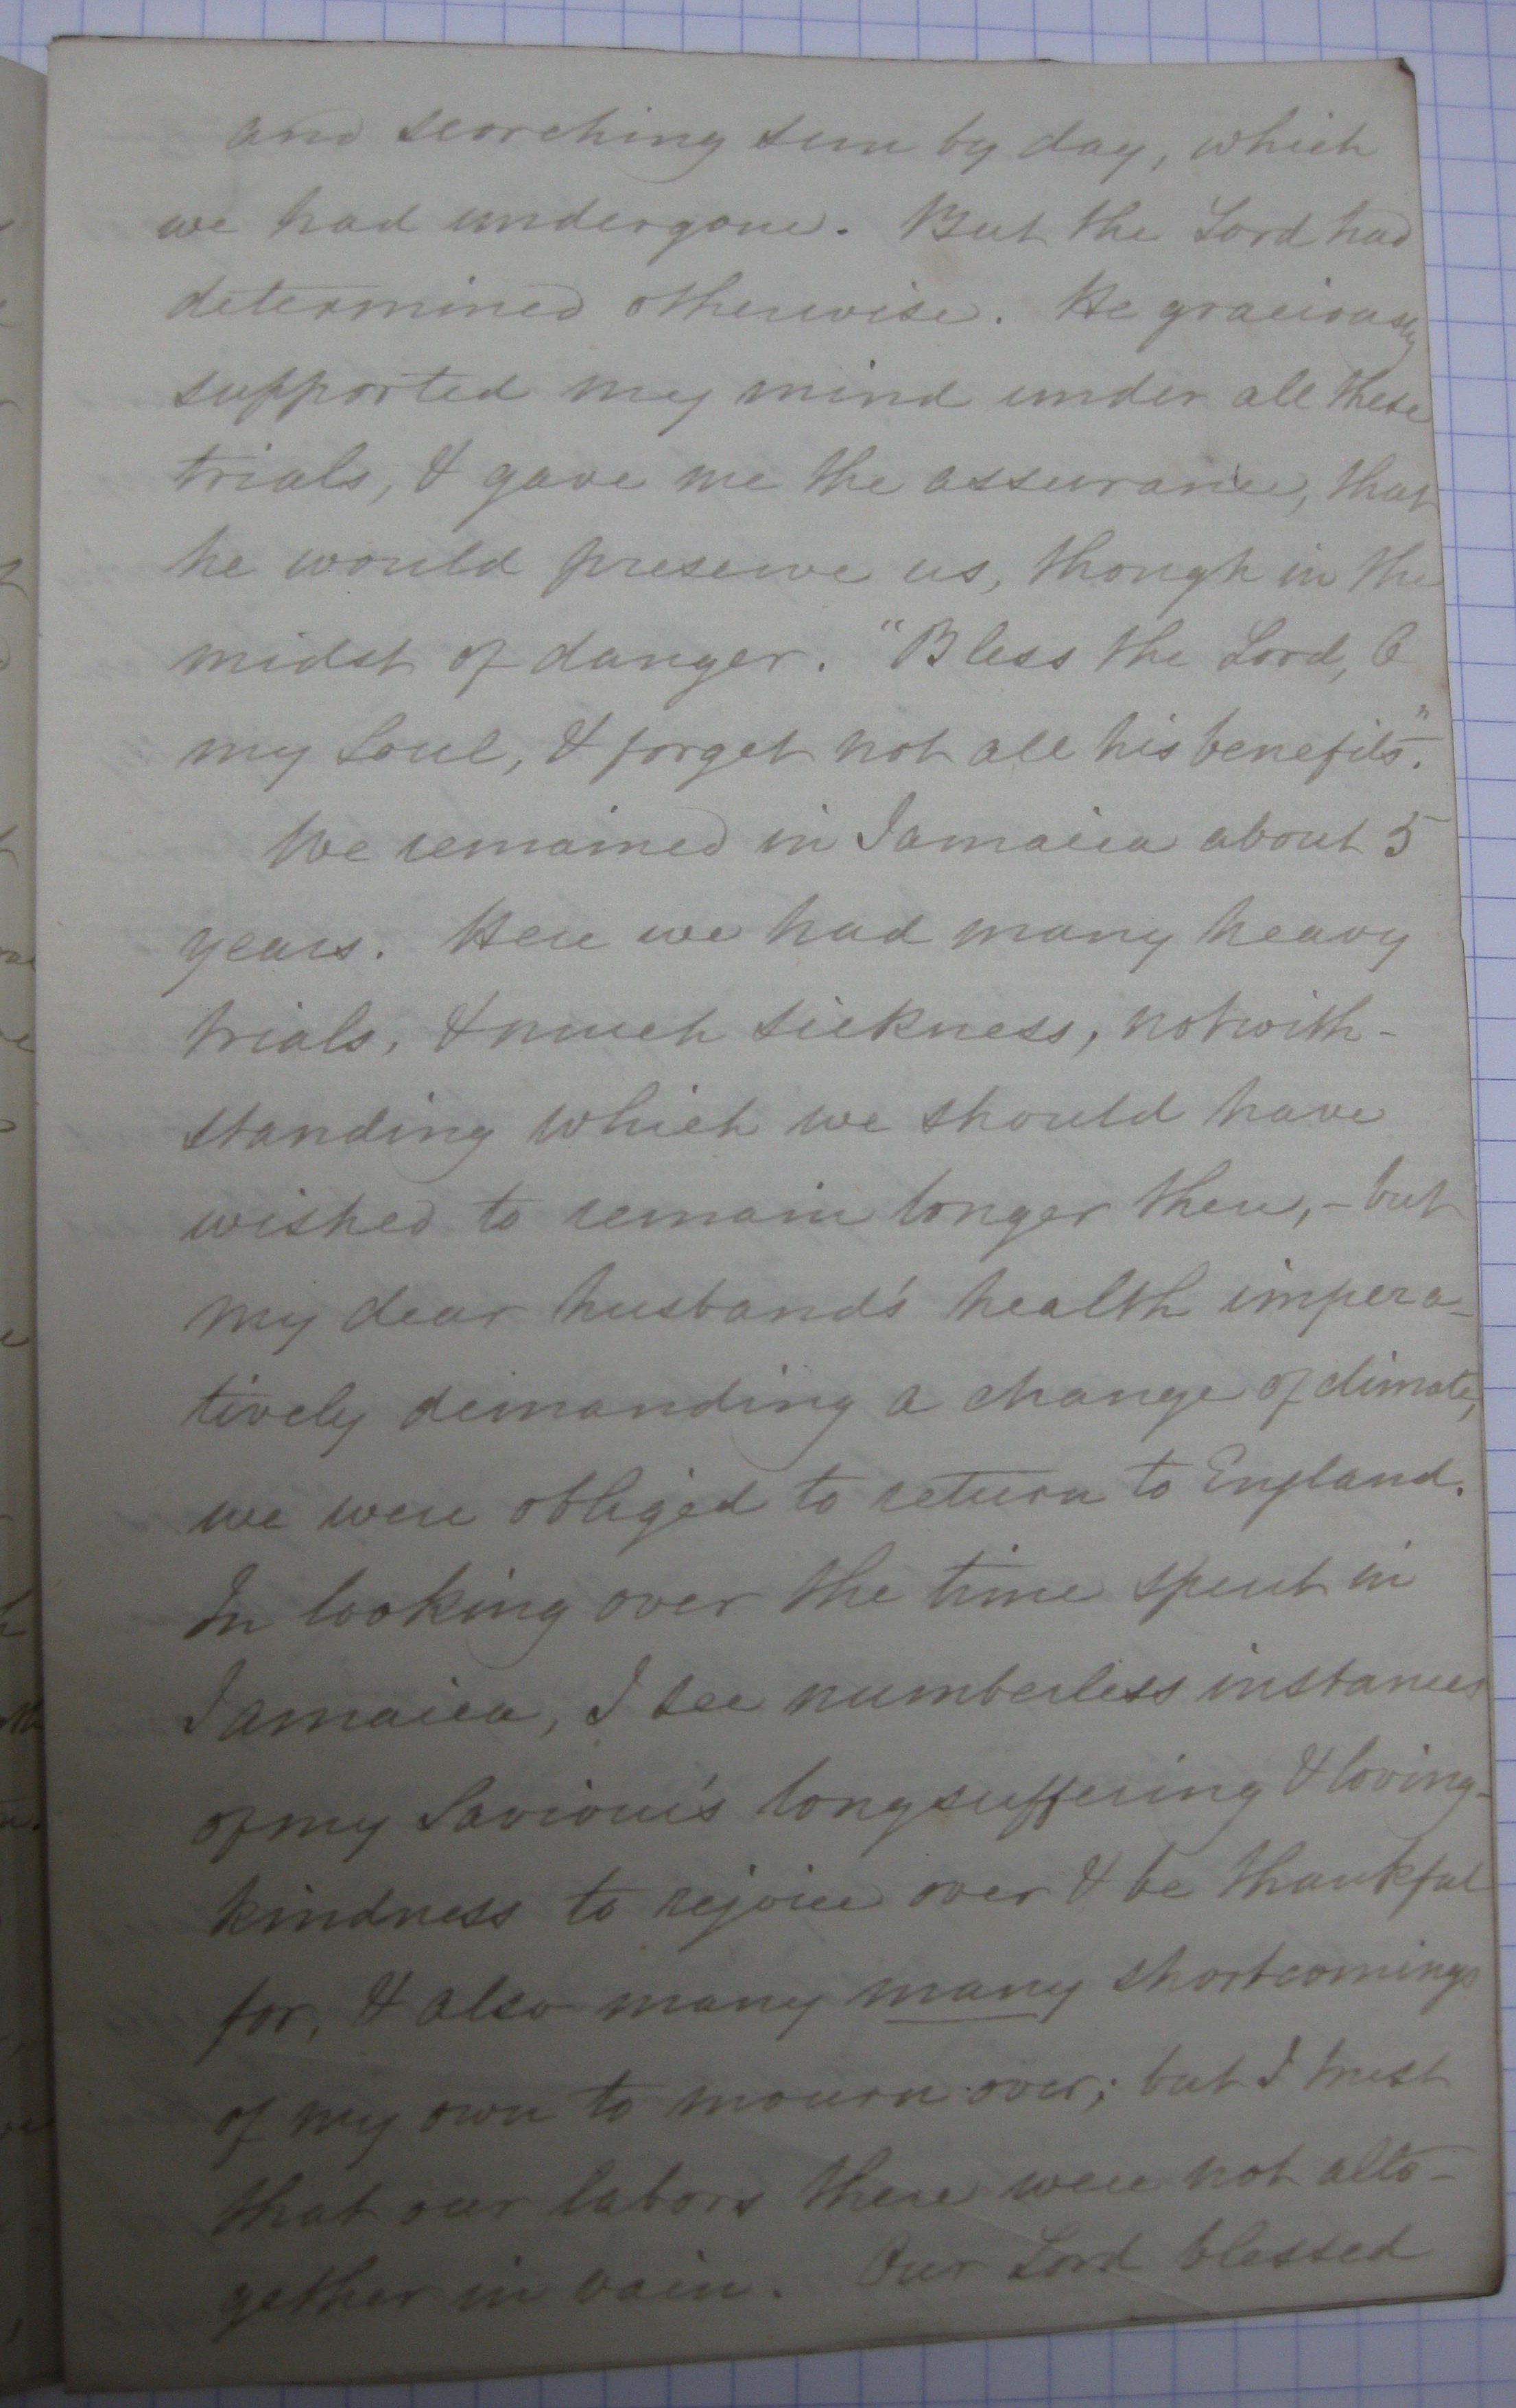 and scorching sun by day, which
we had undergone. But the Lord had
determined otherwise. He graciously
supported my mind under all these
trials, & gave me the assurance, that
he would preserve us, though in the
midst of danger. "Bless the Lord, O
my Soul, & forget not all his benefits".
We remained in Jamaica about 5
years. Here we had many heavy
trials, & much sickness, notwith-
standing which we should have
wished to remain longer there, - but
my dear husband's health impera-
tively demanding a change of climate,
we were obliged to return to England.
In looking over the time spent in
Jamaica, I see numberless instances
of my Saviour's longsuffering & loving-
kindness to rejoice over & be thankful
for, & also many many shortcomings
of my own to mourn over; but I trust
that our labors there were not alto-
gether in vain. Our Lord blessed